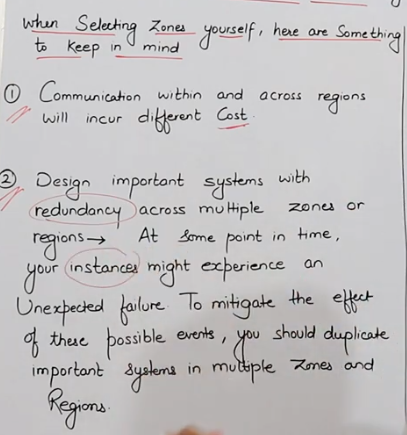 When Selecting Zones yourself, here are Something
to keep in mind
① Communication within and across regions
will incur different Cost.
② Design important systems with
redundancy across multiple zones or
regions → At some point in time,
your instances might experience an
Unexpected failure. To mitigate the effect
of these possible events, you should duplicate
important systems in multiple Zones and
Regions.